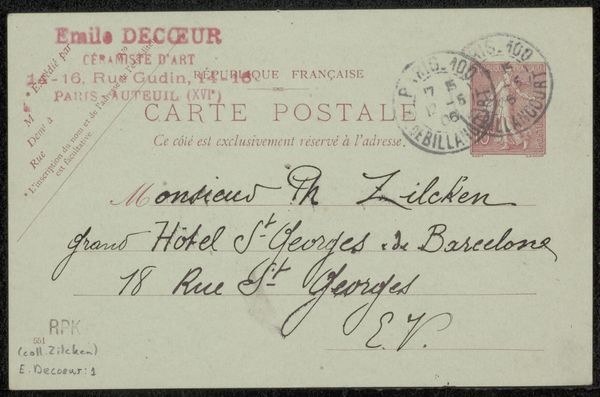 Emile DECŒUR
CÉRAMISTE D'ART
14-16, Rue Gudin, 14-16
PARIS-AUTEUIL (XVIᵉ)
Expédié par
M
Demt à
Rue Nº
*L'inscription du nom et de l'adresse de
est facultative
RÉPUBLIQUE FRANÇAISE
CARTE POSTALE
Ce côté est exclusivement réservé à l'adresse.
PARIS_100
17 15
12 -6
06
R. DE BILLANCOURT
10
Monsieur Ph Zilcken
grand Hôtel St Georges & de Barcelone
18 Rue St Georges
E.V.
RPK
551
(coll. Zilcken)
E. Decoeur: 1